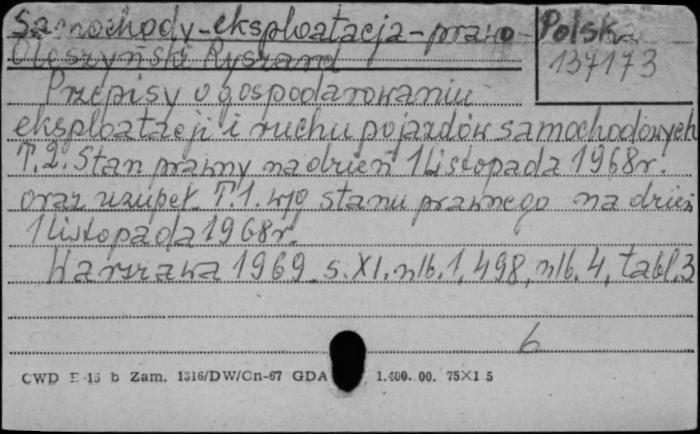 Samochody-eksploatacja-prawo-Polska
Oleszyński Ryszard
137173
Przepisy o gospodarowaniu
eksploatacji i ruchu pojazdów samochodowych
T.2. Stan prawny na dzień 1 listopada 1968r.
oraz uzupeł. T.1. wg stanu prawnego na dzień
1 listopada 1968r.
Warszawa 1969 s. XI, nlb. 1, 498, nlb. 4, tabl. 3
6
CWD E-15 b Zam. 1316/DW/Cn-67 GDA 1.400. 00. 75X1 5